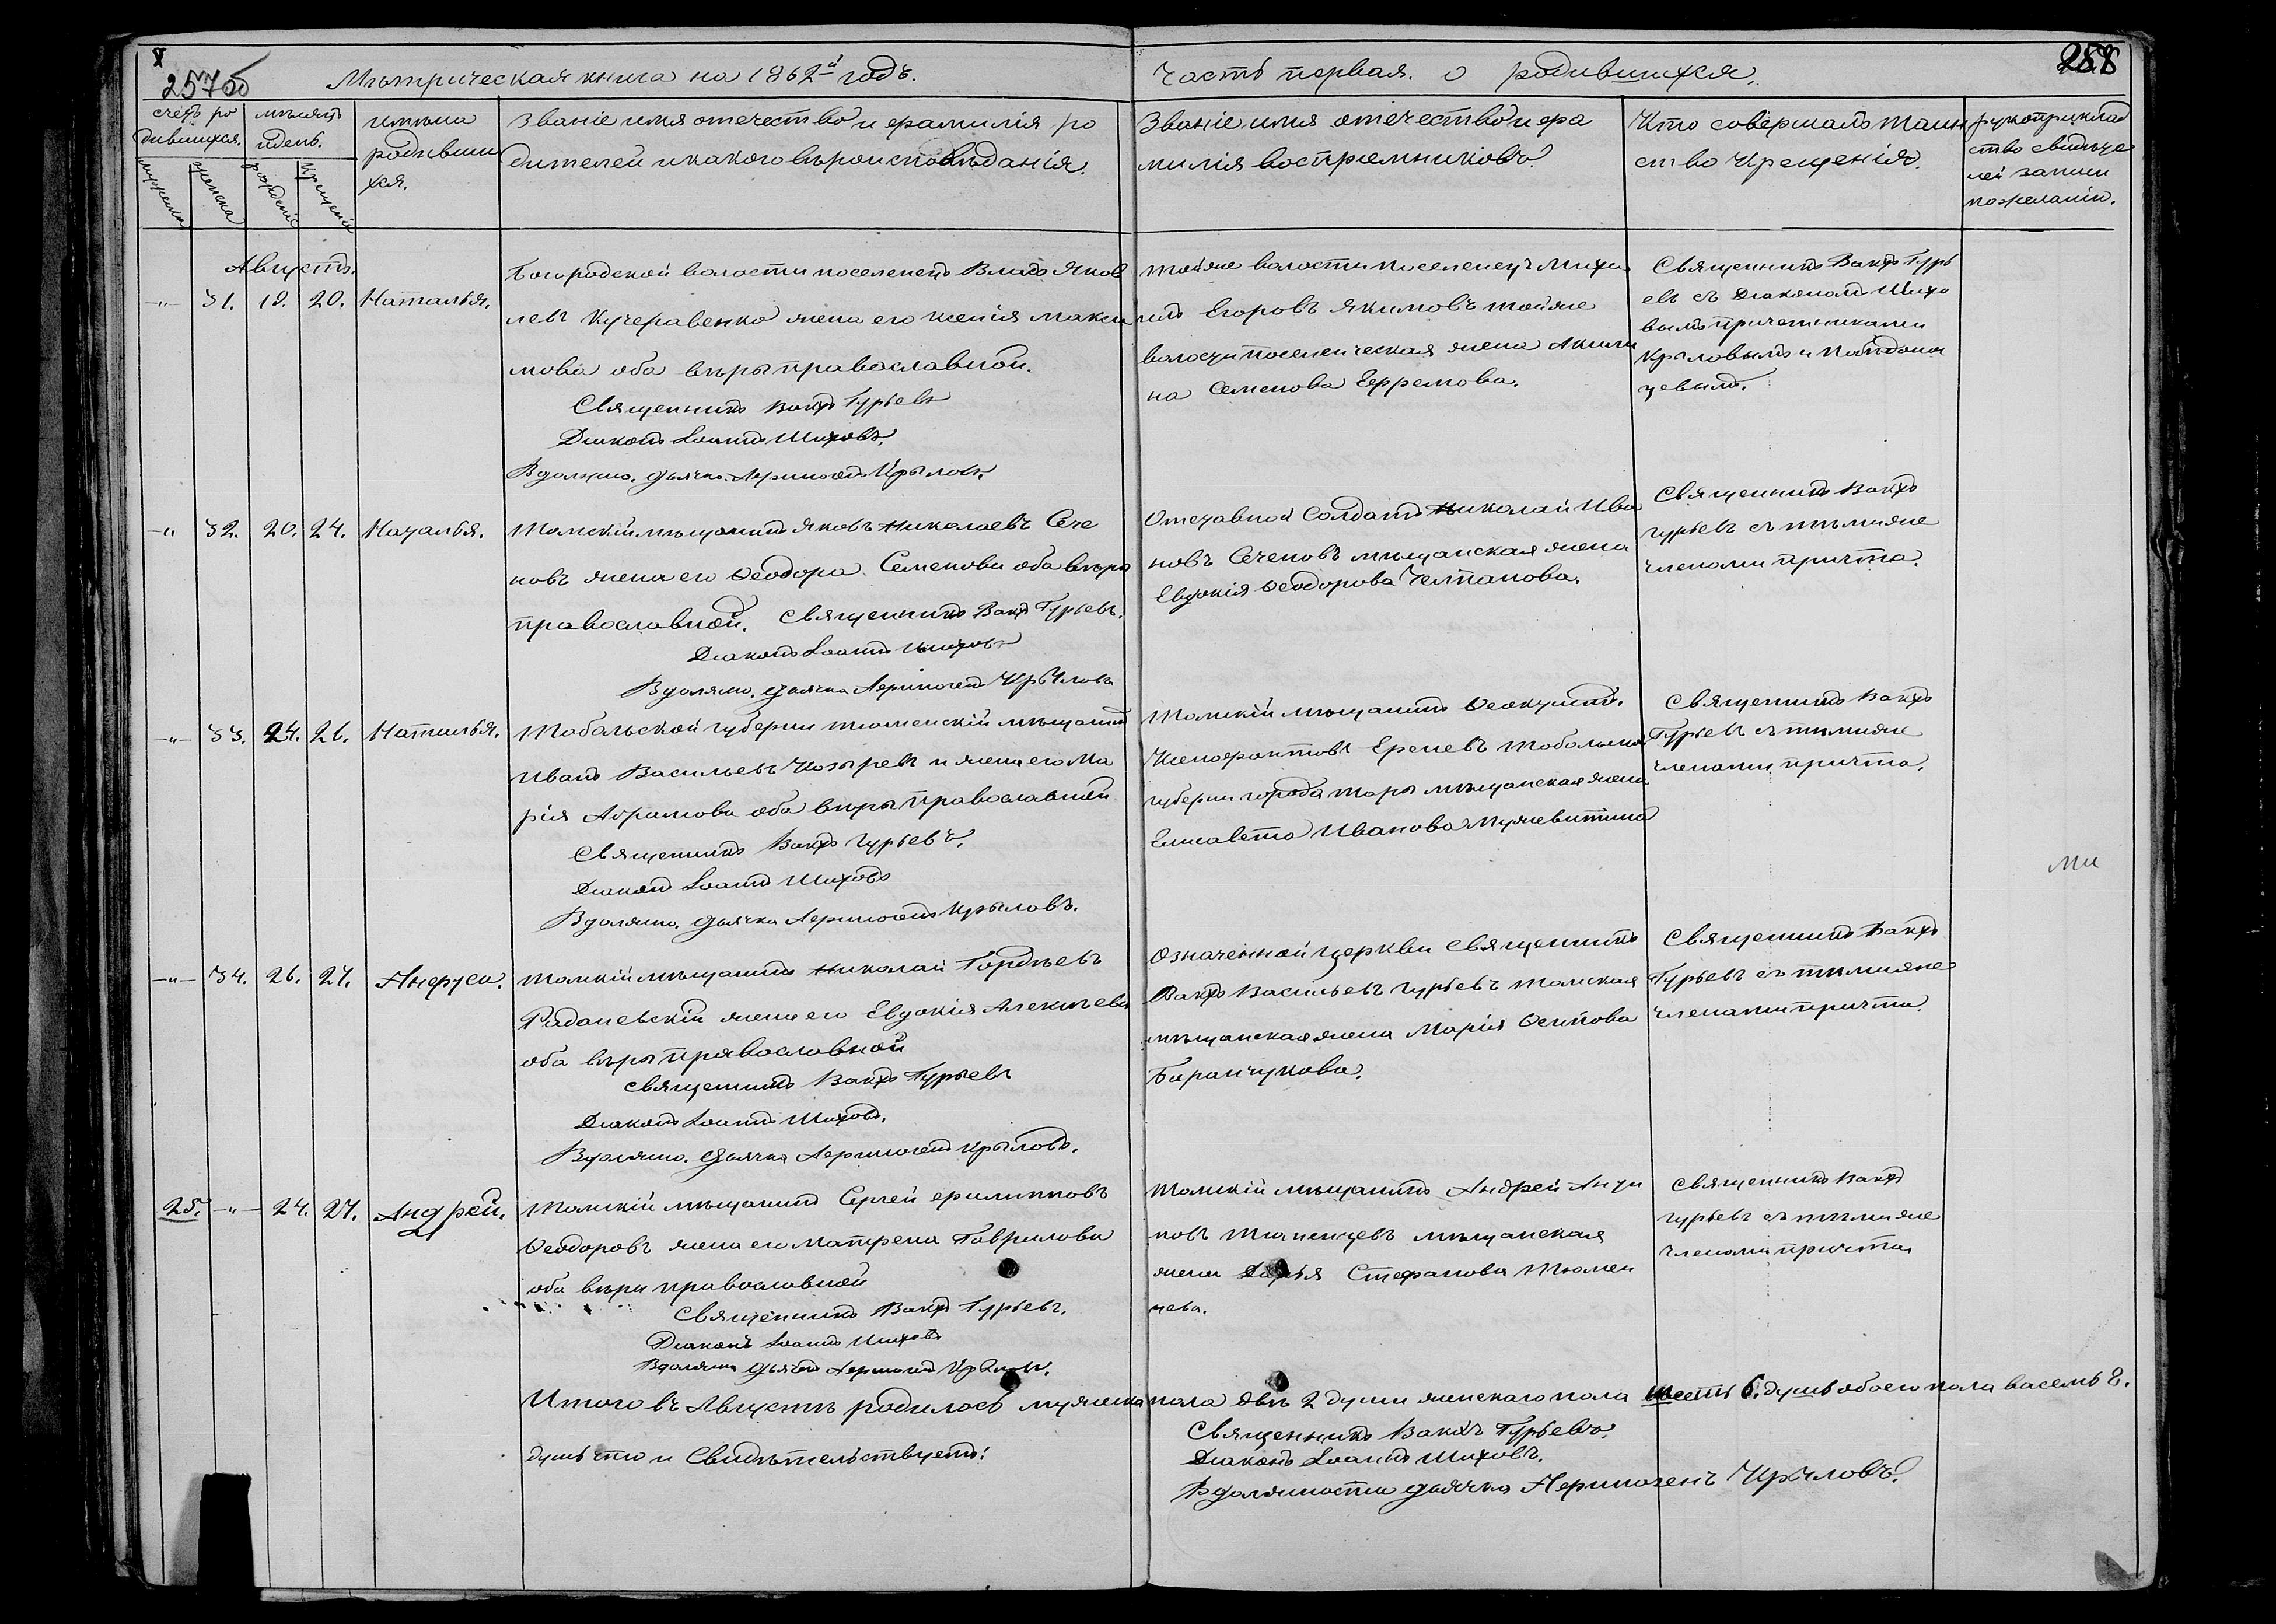 257об
Метрическая книга на 1862й годъ.
Часть первая. о родившихся.
258
счетъ ро
дившихся.
мѣсяцъ
и день.
имѣна
родивши
хся.
Званіе имя отечество и фамилія ро
дителей и какого вѣроисповѣданія.
Званіе имя отечество и фа
милія воспріемниковъ.
Кто совершалъ таин
ство крещенія.
рукоприклад
ство свидѣте
лей записи
по желанію.
мужеска
женска
рожденіе
крещеніе
Августъ.
-"- 31. 19. 20. Наталья.
Богородской волости поселенецъ Власъ Яков
левъ Кучеравенко жена его Ксенія Макси
мова оба вѣры православной.
Священникъ Вакхъ Гурьевъ
Діаконъ Іоаннъ Шиховъ.
В должно. дьячка Нермогенъ Крыловъ.
той же волости поселенецъ Миха
илъ Егоровъ Якимовъ той же
волости поселенческая жена Акили
на Семенова Ефремова.
Священникъ Вакхъ Гурь
евъ съ Діакономъ Шихо
вымъ причетниками
Крыловымъ и
цевымъ.
-"- 32. 20. 24. Наталья.
Томскій мѣщанинъ Яковъ Николаевъ Сече
новъ жена его Ѳеодора Семенова оба вѣры
православной. Священникъ Вакхъ Гурьевъ.
Діаконъ Іоаннъ Шиховъ
В должно. дьячка Нермогенъ Крыловъ
Отставной Солдатъ Николай Ива
новъ Сеченовъ мѣщанская жена
Евдокія Ѳеодорова Челпанова.
Священникъ Вакхъ
Гурьевъ съ тѣми же
членами причта.
-"- 33. 24. 26. Наталья.
Тобольской губерніи тюменскій мѣщанинъ
Иванъ Васильевъ Козыревъ и жена его Ма
рія Абрамова оба вѣры православной
Священникъ Вакхъ Гурьевъ.
Діаконъ Іоаннъ Шиховъ
В должно. дьячка Нермогенъ Крыловъ.
Томскій мѣщанинъ Ѳеоктистъ
Ксенофонтовъ Ереневъ Тобольской
губерніи города Тары мѣщанская жена
Елисавета Иванова
Священникъ Вакхъ
Гурьевъ съ тѣми же
членами причта.
ми
-"- 34. 26. 27. Анфуса.
Томскій мѣщанинъ Николай Гордѣевъ
Радоневскій жена его Евдокія Алексѣева
оба вѣры православной
Священникъ Вакхъ Гурьевъ
Діаконъ Іоаннъ Шиховъ.
В должно. дьячка Нермогенъ Крыловъ.
Означенной церкви Священникъ
Вакхъ Васильевъ Гурьевъ томская
мѣщанская жена Марія Осипова
Баранчукова.
Священникъ Вакхъ
Гурьевъ съ тѣми же
членами причта.
25. -"- 24. 27. Андрей.
Томскій мѣщанинъ Сергей Филипповъ
Ѳеодоровъ жена его Матрена Гаврилова
оба вѣры православной
Священникъ Вакхъ Гурьевъ.
Діаконъ Іоаннъ Шиховъ
В должно дьячка Нермогенъ Крыловъ.
Томскій мѣщанинъ Андрей
новъ мѣщанская
жена Дарья Стефанова Тюмен
цева.
Священникъ Вакхъ
Гурьевъ съ тѣми же
членами причта
Итого въ Августѣ родилось мужеска пола двѣ 2 души женскаго пола шесть 6. душъ обоего пола восемь 8.
душъ что и Свидѣтельствуетъ:
Священникъ Вакхъ Гурьевъ.
Діаконъ Іоаннъ Шиховъ.
В должности дьячка Нермогенъ Крыловъ.